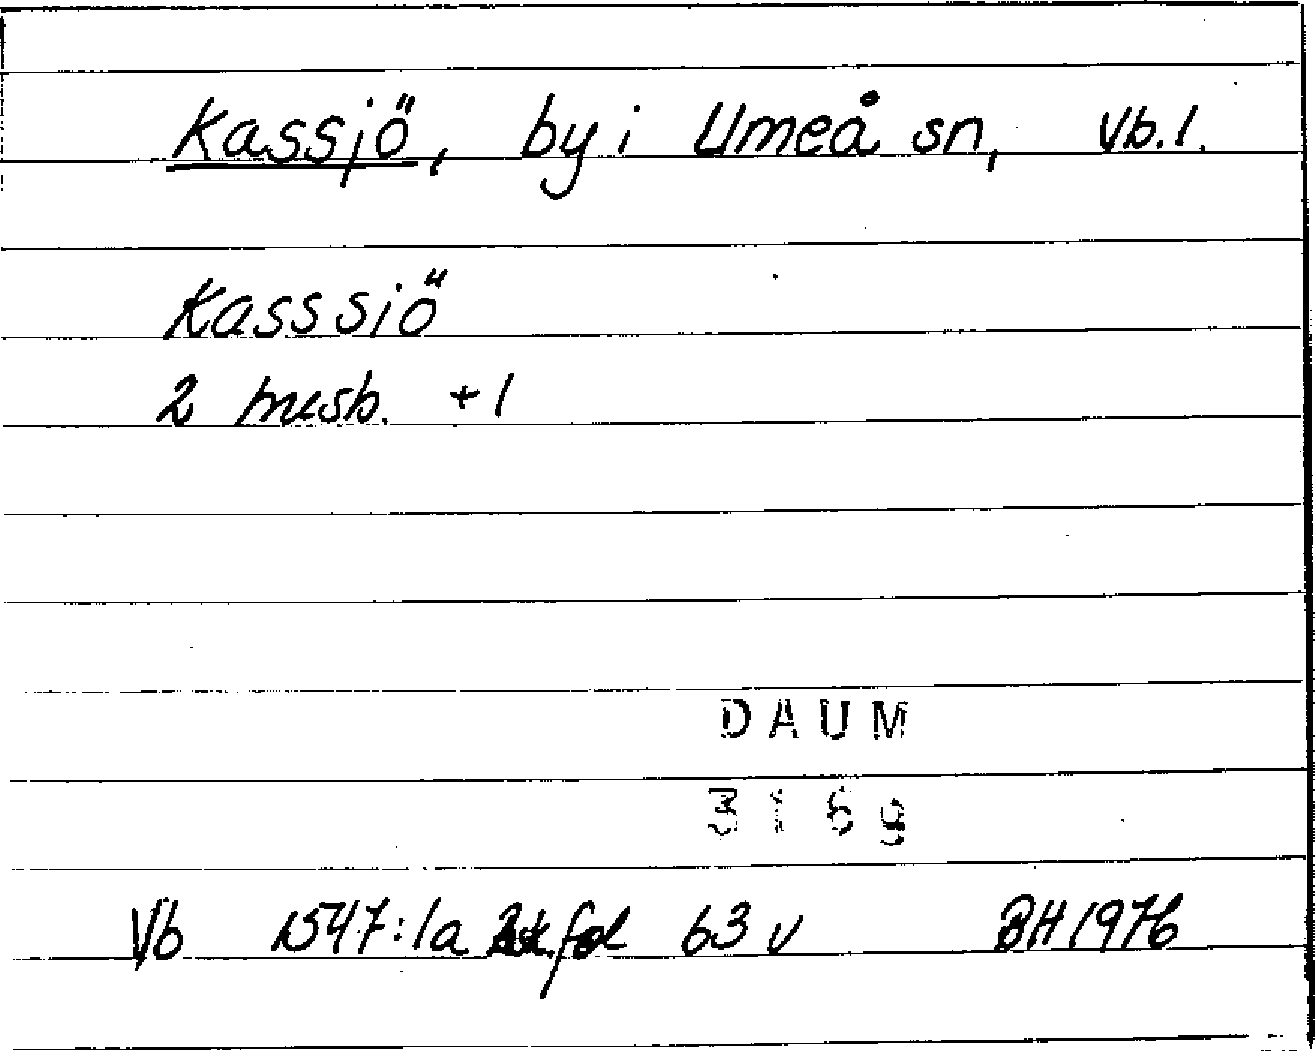 Kassjö, by i Umeå sn, Vb.l.
Kasssiö
2 husb. + 1
DAUM
3169
Vb 1547:1a fol 63 v BH 1976